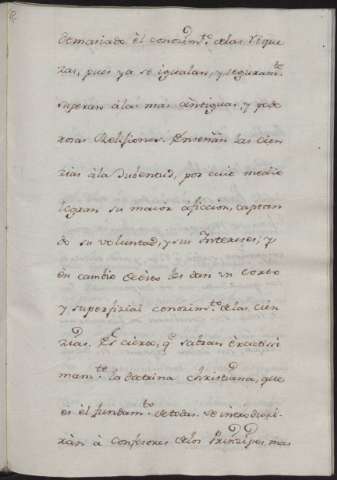 demasiado èl conozim.to delas Rique
zas, pues ya se igualan, y seguram.te
superan àlas mas àntiguas, y pode
rosas Relijiones. Enseñan las cien
zias àla Jubentud, por cuio medio
logran su maior àficcion, captan
do su voluntad, y sus Intereses; y
èn cambio deèsto les dan vn corto
y superfizial conozim.to delas cien
zias. Es cierto, q.e sabran èxactissi
mam.te la doctrina christiana, que
es èl fundam.to detodas. se introduzi
ràn à confesores delos Prinzipes mas